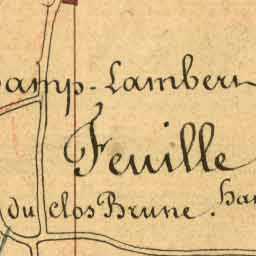 amp-Lambert
Feuille
du clos Brune.